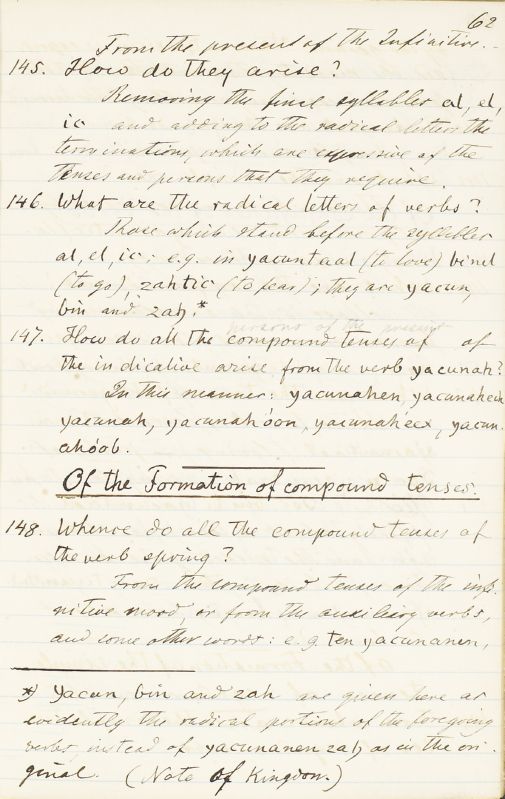 62
From the present of the Infinitive.
145. How do they arise?
Removing the final syllables al, el,
ic and adding to the radical letters the
terminations, which are expressive of the
tenses and persons that they require.
146. What are the radical letters of verbs?
Those which stand before the syllables
al, el, ic; e.g. in yacuntaal (to love) binel
(to go), zahtic (to fear); they are yacun,
bin and zah.*
persons of the present
147. How do all the compound tenses of of
the indicative arise from the verb yacunah?
In this manner: yacunahen, yacunahech
yacunah, yacunahóon, yacunaheex, yacun-
ahóob.
Of the Formation of compound tenses.
148. Whence do all the compound tenses of
the verb spring?
From the compound tenses of the infi-
nitive mood, or from the auxiliary verbs,
and some other words: e.g. ten yacunanen,
*) Yacun, bin and zah are given here as
evidently the radical portions of the foregoing
verbs, instead of yacunanen zah as in the ori-
ginal. (Note of Kingdom.)